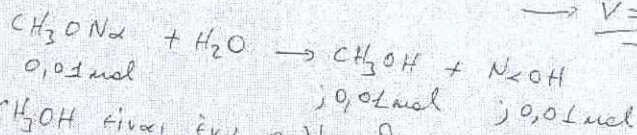 → V =
CH₃ONa + H₂O → CH₃OH + NaOH
0,01mol ; 0,01mol ; 0,01mol
CH₃OH είναι